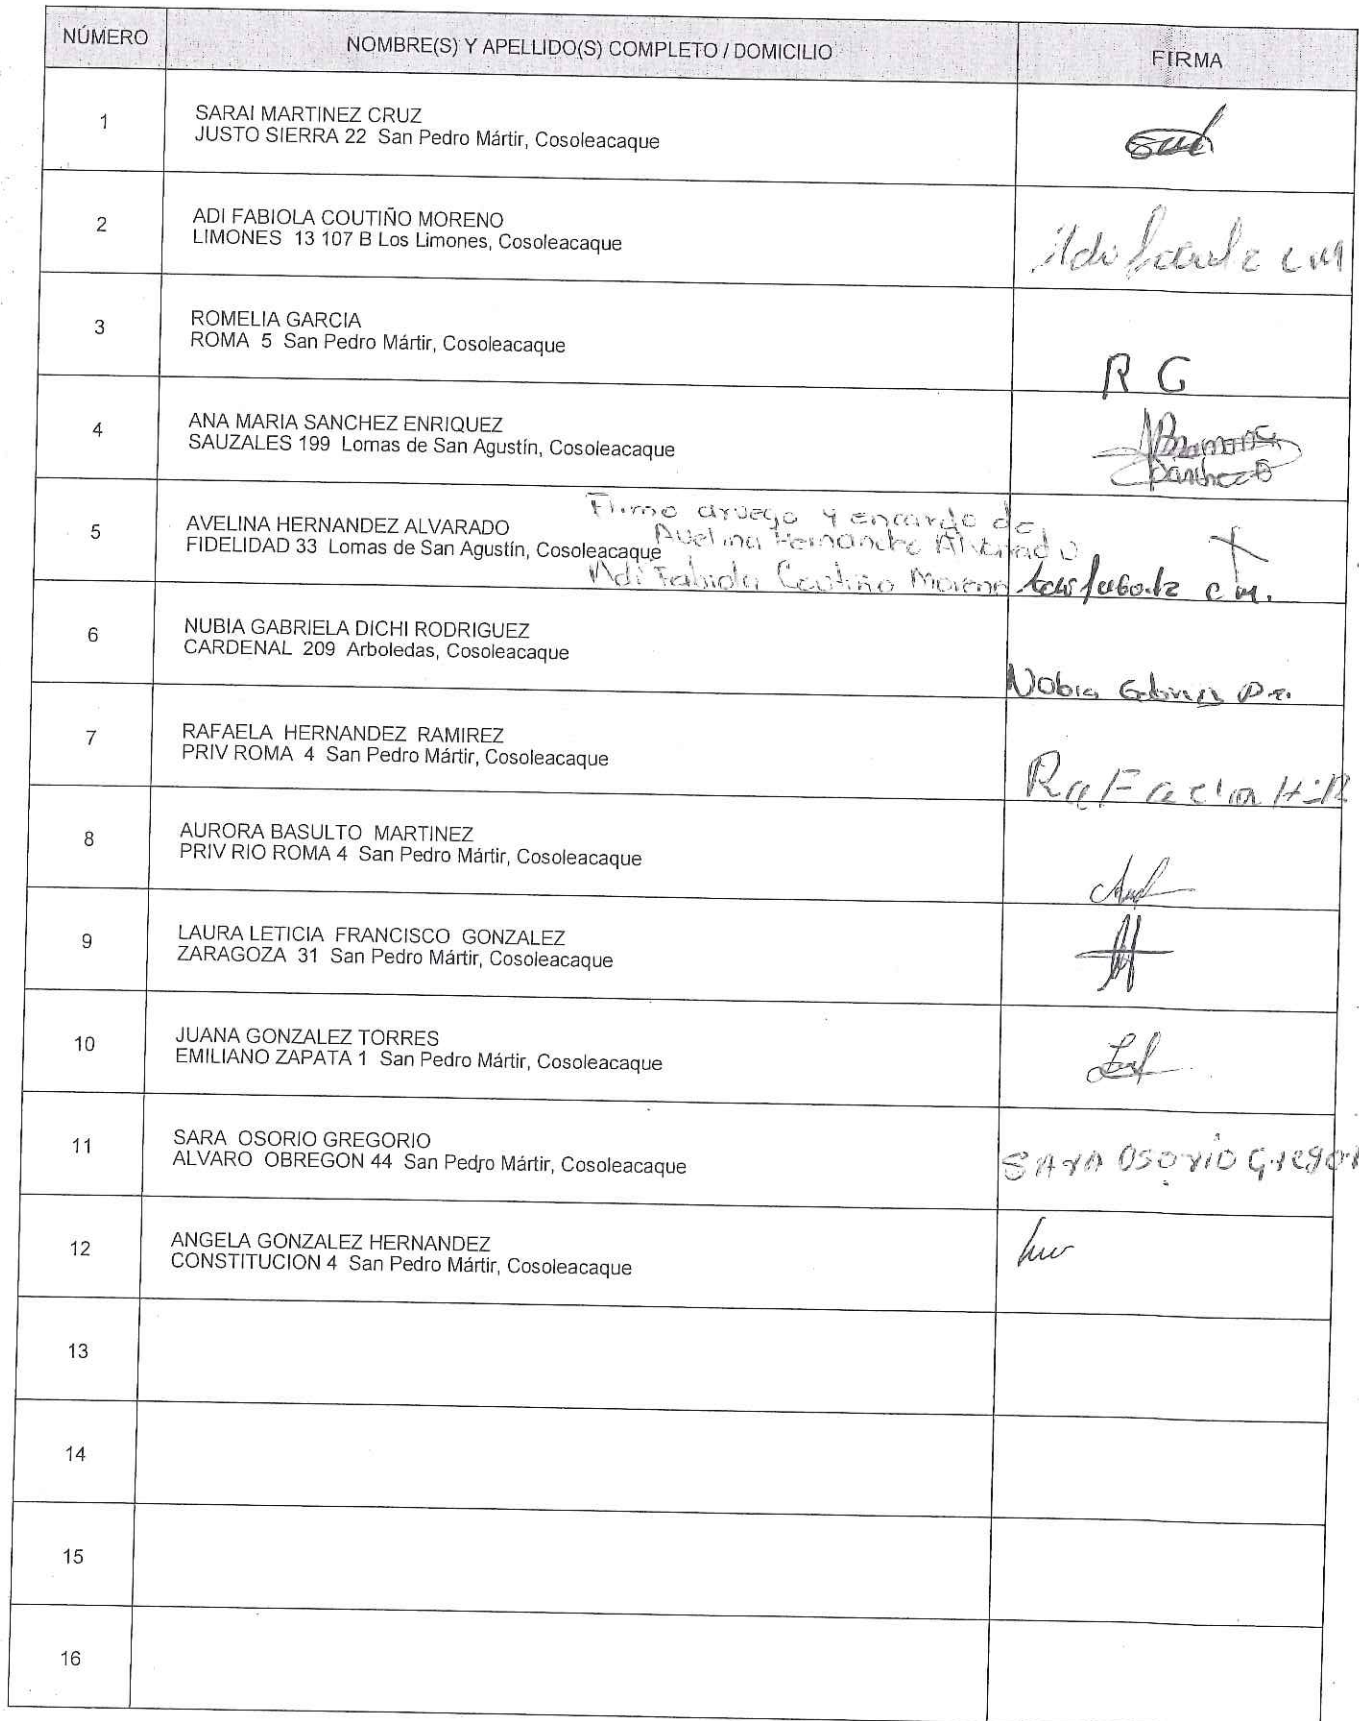 NÚMERO NOMBRE(S) Y APELLIDO(S) COMPLETO / DOMICILIO FIRMA
1 SARAI MARTINEZ CRUZ
JUSTO SIERRA 22 San Pedro Mártir, Cosoleacaque
2 ADI FABIOLA COUTIÑO MORENO
LIMONES 13 107 B Los Limones, Cosoleacaque
3 ROMELIA GARCIA
ROMA 5 San Pedro Mártir, Cosoleacaque
R G
4 ANA MARIA SANCHEZ ENRIQUEZ
SAUZALES 199 Lomas de San Agustín, Cosoleacaque
Firmo aruego y encargo de
5 AVELINA HERNANDEZ ALVARADO
Avelina Hernandez Alvarado
FIDELIDAD 33 Lomas de San Agustín, Cosoleacaque
Adi Fabiola Coutiño Moreno c m.
6 NUBIA GABRIELA DICHI RODRIGUEZ
CARDENAL 209 Arboledas, Cosoleacaque
7 RAFAELA HERNANDEZ RAMIREZ
PRIV ROMA 4 San Pedro Mártir, Cosoleacaque
8 AURORA BASULTO MARTINEZ
PRIV RIO ROMA 4 San Pedro Mártir, Cosoleacaque
9 LAURA LETICIA FRANCISCO GONZALEZ
ZARAGOZA 31 San Pedro Mártir, Cosoleacaque
10 JUANA GONZALEZ TORRES
EMILIANO ZAPATA 1 San Pedro Mártir, Cosoleacaque
11 SARA OSORIO GREGORIO
ALVARO OBREGON 44 San Pedro Mártir, Cosoleacaque
SArA OSOriO Gregor
12 ANGELA GONZALEZ HERNANDEZ
CONSTITUCION 4 San Pedro Mártir, Cosoleacaque
13
14
15
16